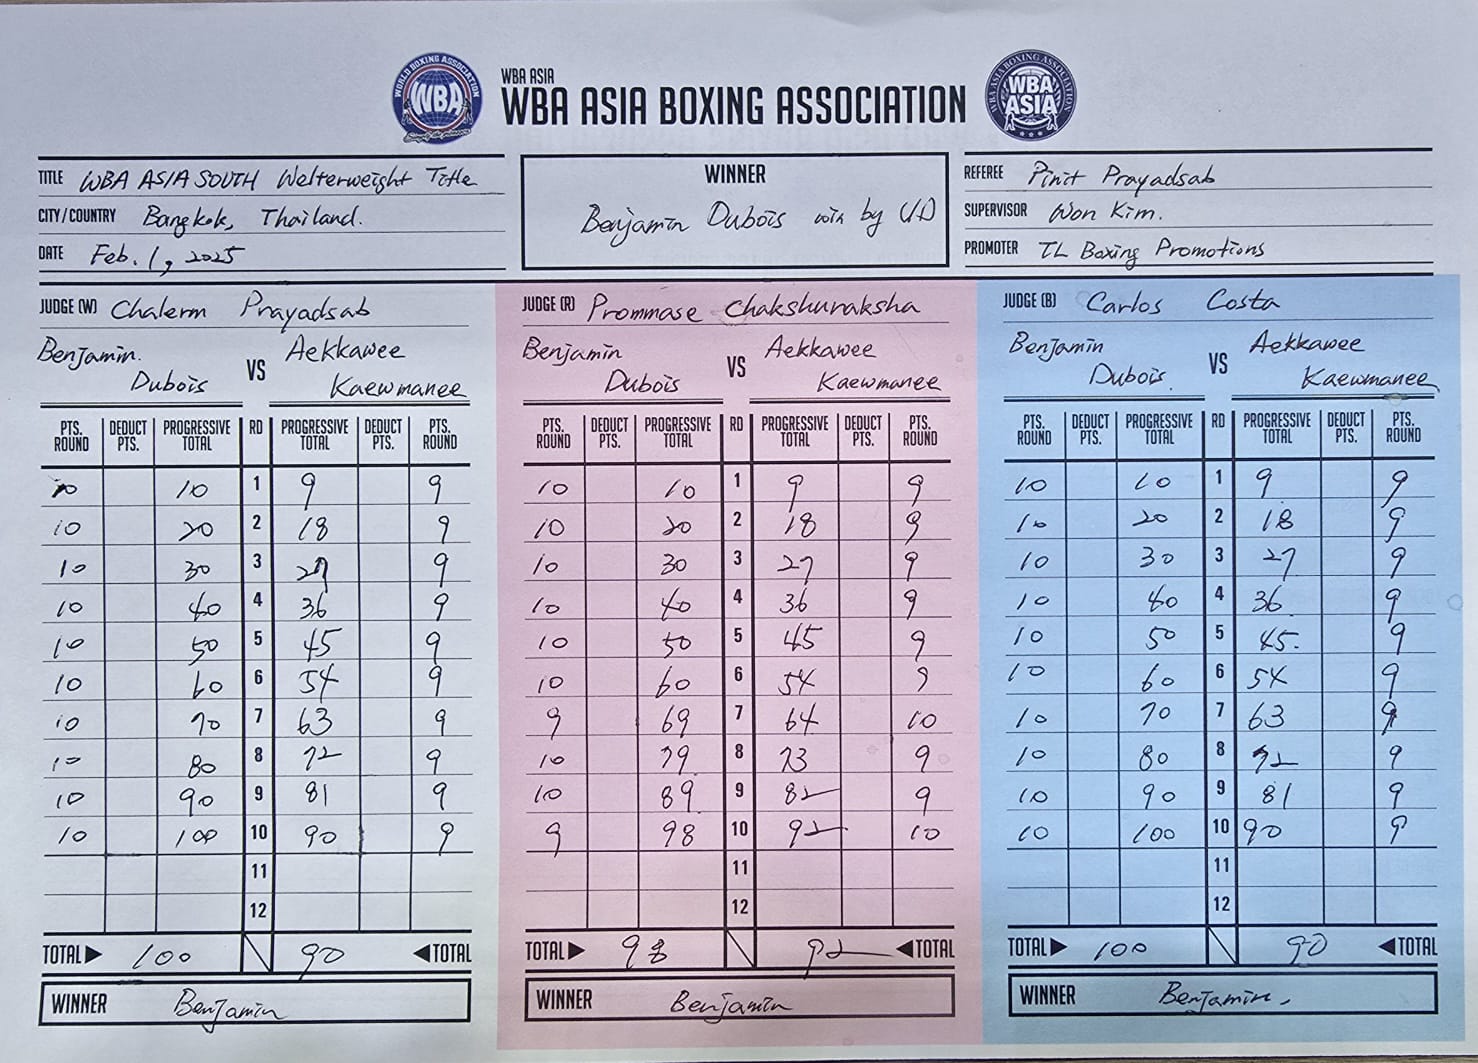 WORLD BOXING ASSOCIATION
WBA
Simply the pioneers
WBA ASIA
WBA ASIA BOXING ASSOCIATION
WBA ASIA BOXING ASSOCIATION
WBA
ASIA
TITLE WBA ASIA SOUTH Welterweight Title
CITY/COUNTRY Bangkok, Thailand.
DATE Feb. 1, 2025
WINNER
Benjamin Dubois win by UD
REFEREE Pinit Prayadsab
SUPERVISOR Won Kim.
PROMOTER TL Boxing Promotions
JUDGE (W) Chalerm Prayadsab
Benjamin. Dubois VS Aekkawee Kaewmanee
PTS. ROUND DEDUCT PTS. PROGRESSIVE TOTAL RD PROGRESSIVE TOTAL DEDUCT PTS. PTS. ROUND
10 10 1 9 9
10 20 2 18 9
10 30 3 27 9
10 40 4 36 9
10 50 5 45 9
10 60 6 54 9
10 70 7 63 9
10 80 8 72 9
10 90 9 81 9
10 100 10 90 9
11
12
TOTAL 100 90 TOTAL
WINNER Benjamin
JUDGE (R) Prommase Chakshuraksha
Benjamin Dubois VS Aekkawee Kaewmanee
PTS. ROUND DEDUCT PTS. PROGRESSIVE TOTAL RD PROGRESSIVE TOTAL DEDUCT PTS. PTS. ROUND
10 10 1 9 9
10 20 2 18 9
10 30 3 27 9
10 40 4 36 9
10 50 5 45 9
10 60 6 54 9
9 69 7 64 10
10 79 8 73 9
10 89 9 82 9
9 98 10 92 10
11
12
TOTAL 98 92 TOTAL
WINNER Benjamin
JUDGE (B) Carlos Costa
Benjamin Dubois. VS Aekkawee Kaewmanee
PTS. ROUND DEDUCT PTS. PROGRESSIVE TOTAL RD PROGRESSIVE TOTAL DEDUCT PTS. PTS. ROUND
10 10 1 9 9
10 20 2 18 9
10 30 3 27 9
10 40 4 36. 9
10 50 5 45. 9
10 60 6 54 9
10 70 7 63 9
10 80 8 72 9
10 90 9 81 9
10 100 10 90 9
11
12
TOTAL 100 90 TOTAL
WINNER Benjamin.